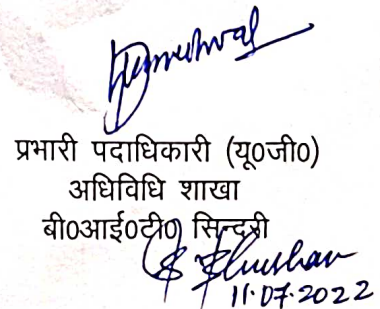 प्रभारी पदाधिकारी (यू0जी0)
अधिविधि शाखा
बी0आई0टी0 सिन्दरी
11.07.2022